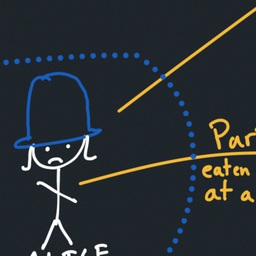 Par
eaten
at a
ALICE